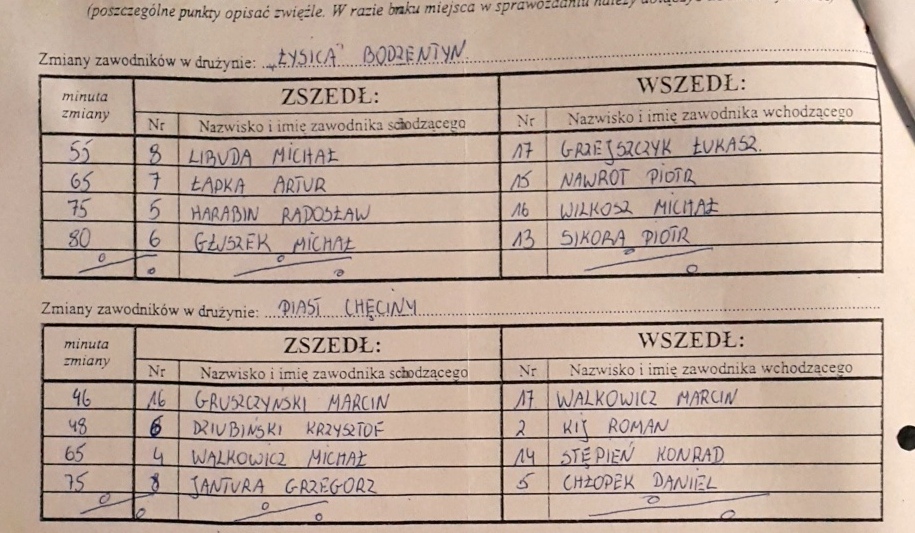 (poszczególne punkty opisać zwięźle. W razie braku miejsca w sprawozdaniu należy
Zmiany zawodników w drużynie: „ŁYSICA" BODZENTYN
minuta zmiany ZSZEDŁ: WSZEDŁ:
Nr Nazwisko i imię zawodnika schodzącego Nr Nazwisko i imię zawodnika wchodzącego
55 8 LIBUDA MICHAŁ 17 GRZEJSZCZYK ŁUKASZ.
65 7 ŁAPKA ARTUR 15 NAWROT PIOTR
75 5 HARABIN RADOSŁAW 16 WILKOSZ MICHAŁ
80 6 GŁUSZEK MICHAŁ 13 SIKORA PIOTR
Zmiany zawodników w drużynie: PIAST CHĘCINY
minuta zmiany ZSZEDŁ: WSZEDŁ:
Nr Nazwisko i imię zawodnika schodzącego Nr Nazwisko i imię zawodnika wchodzącego
46 16 GRUSZCZYŃSKI MARCIN 17 WALKOWICZ MARCIN
48 6 DZIUBIŃSKI KRZYSZTOF 2 KIJ ROMAN
65 4 WALKOWICZ MICHAŁ 14 STĘPIEŃ KONRAD
75 8 JANTURA GRZEGORZ 5 CHŁOPEK DANIEL